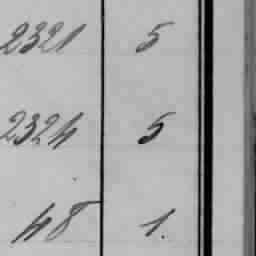 2321 5
2324 5
48 1.